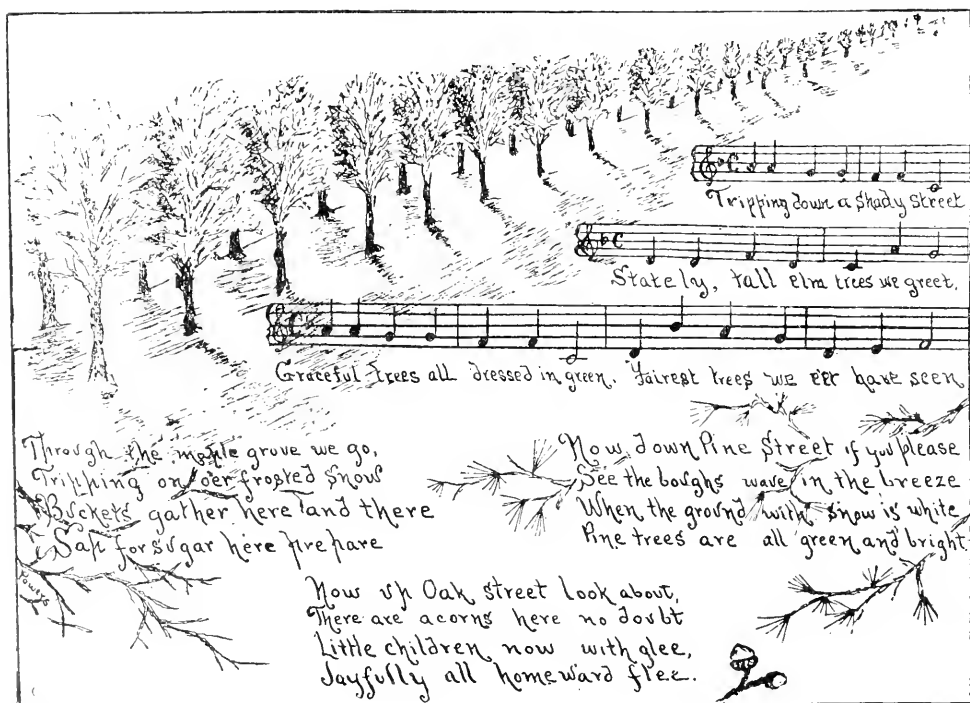 Tripping down a shady street
Stately, tall elm trees we greet,
Graceful trees all dressed in green. Fairest trees we e'er have seen
Through the maple grove we go,
Tripping on o'er frosted snow
Buckets gather here and there
Sap for sugar here prepare
Now down Pine Street if you please
See the boughs wave in the breeze
When the ground with snow is white
Pine trees are all green and bright
Powers
Now up Oak street look about,
There are acorns here no doubt
Little children now with glee,
Joyfully all homeward flee.